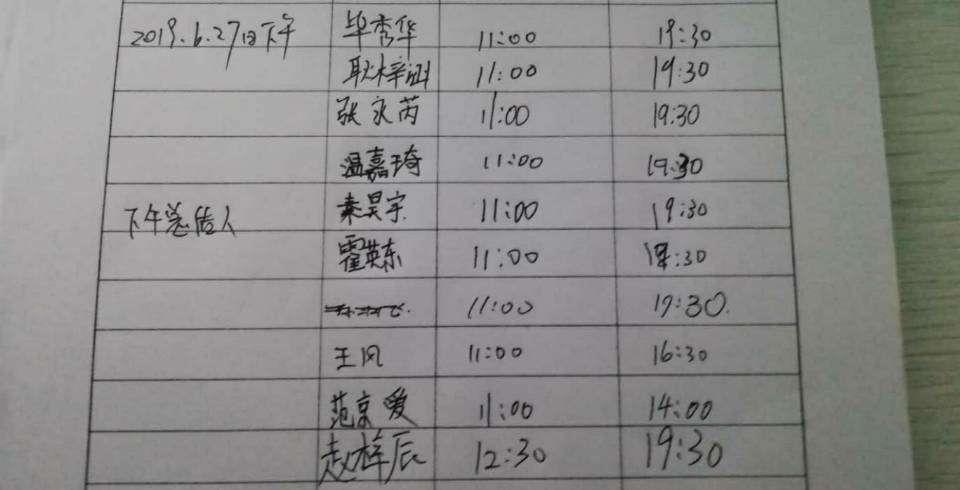 2019.6.27日下午 毕秀华 11:00 19:30
耿梓涵 11:00 19:30
张永芮 11:00 19:30
温嘉琦 11:00 19:30
下午 人 秦昊宇 11:00 19:30
霍英东 11:00 :30
11:00 19:30
王风 11:00 16:30
范京爱 11:00 14:00
赵梓辰 12:30 19:30